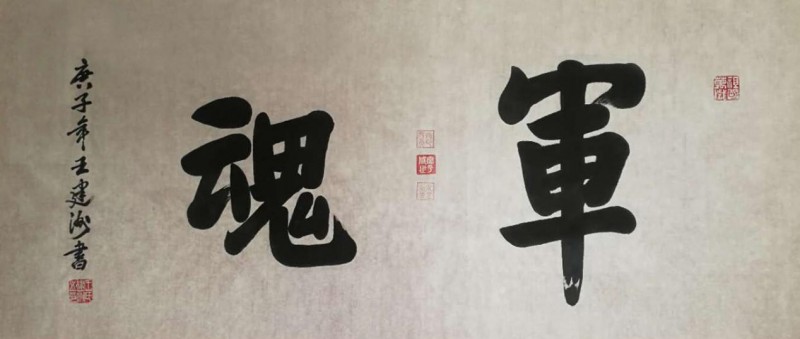 軍魂
庚子年王建洲書